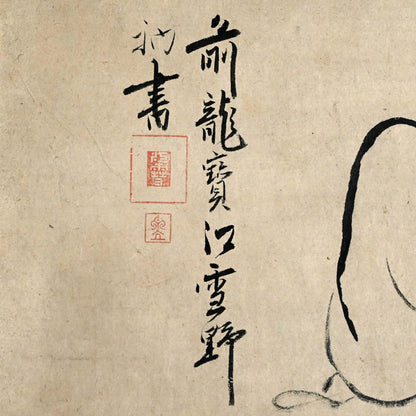 前龍寳江雪野
衲書